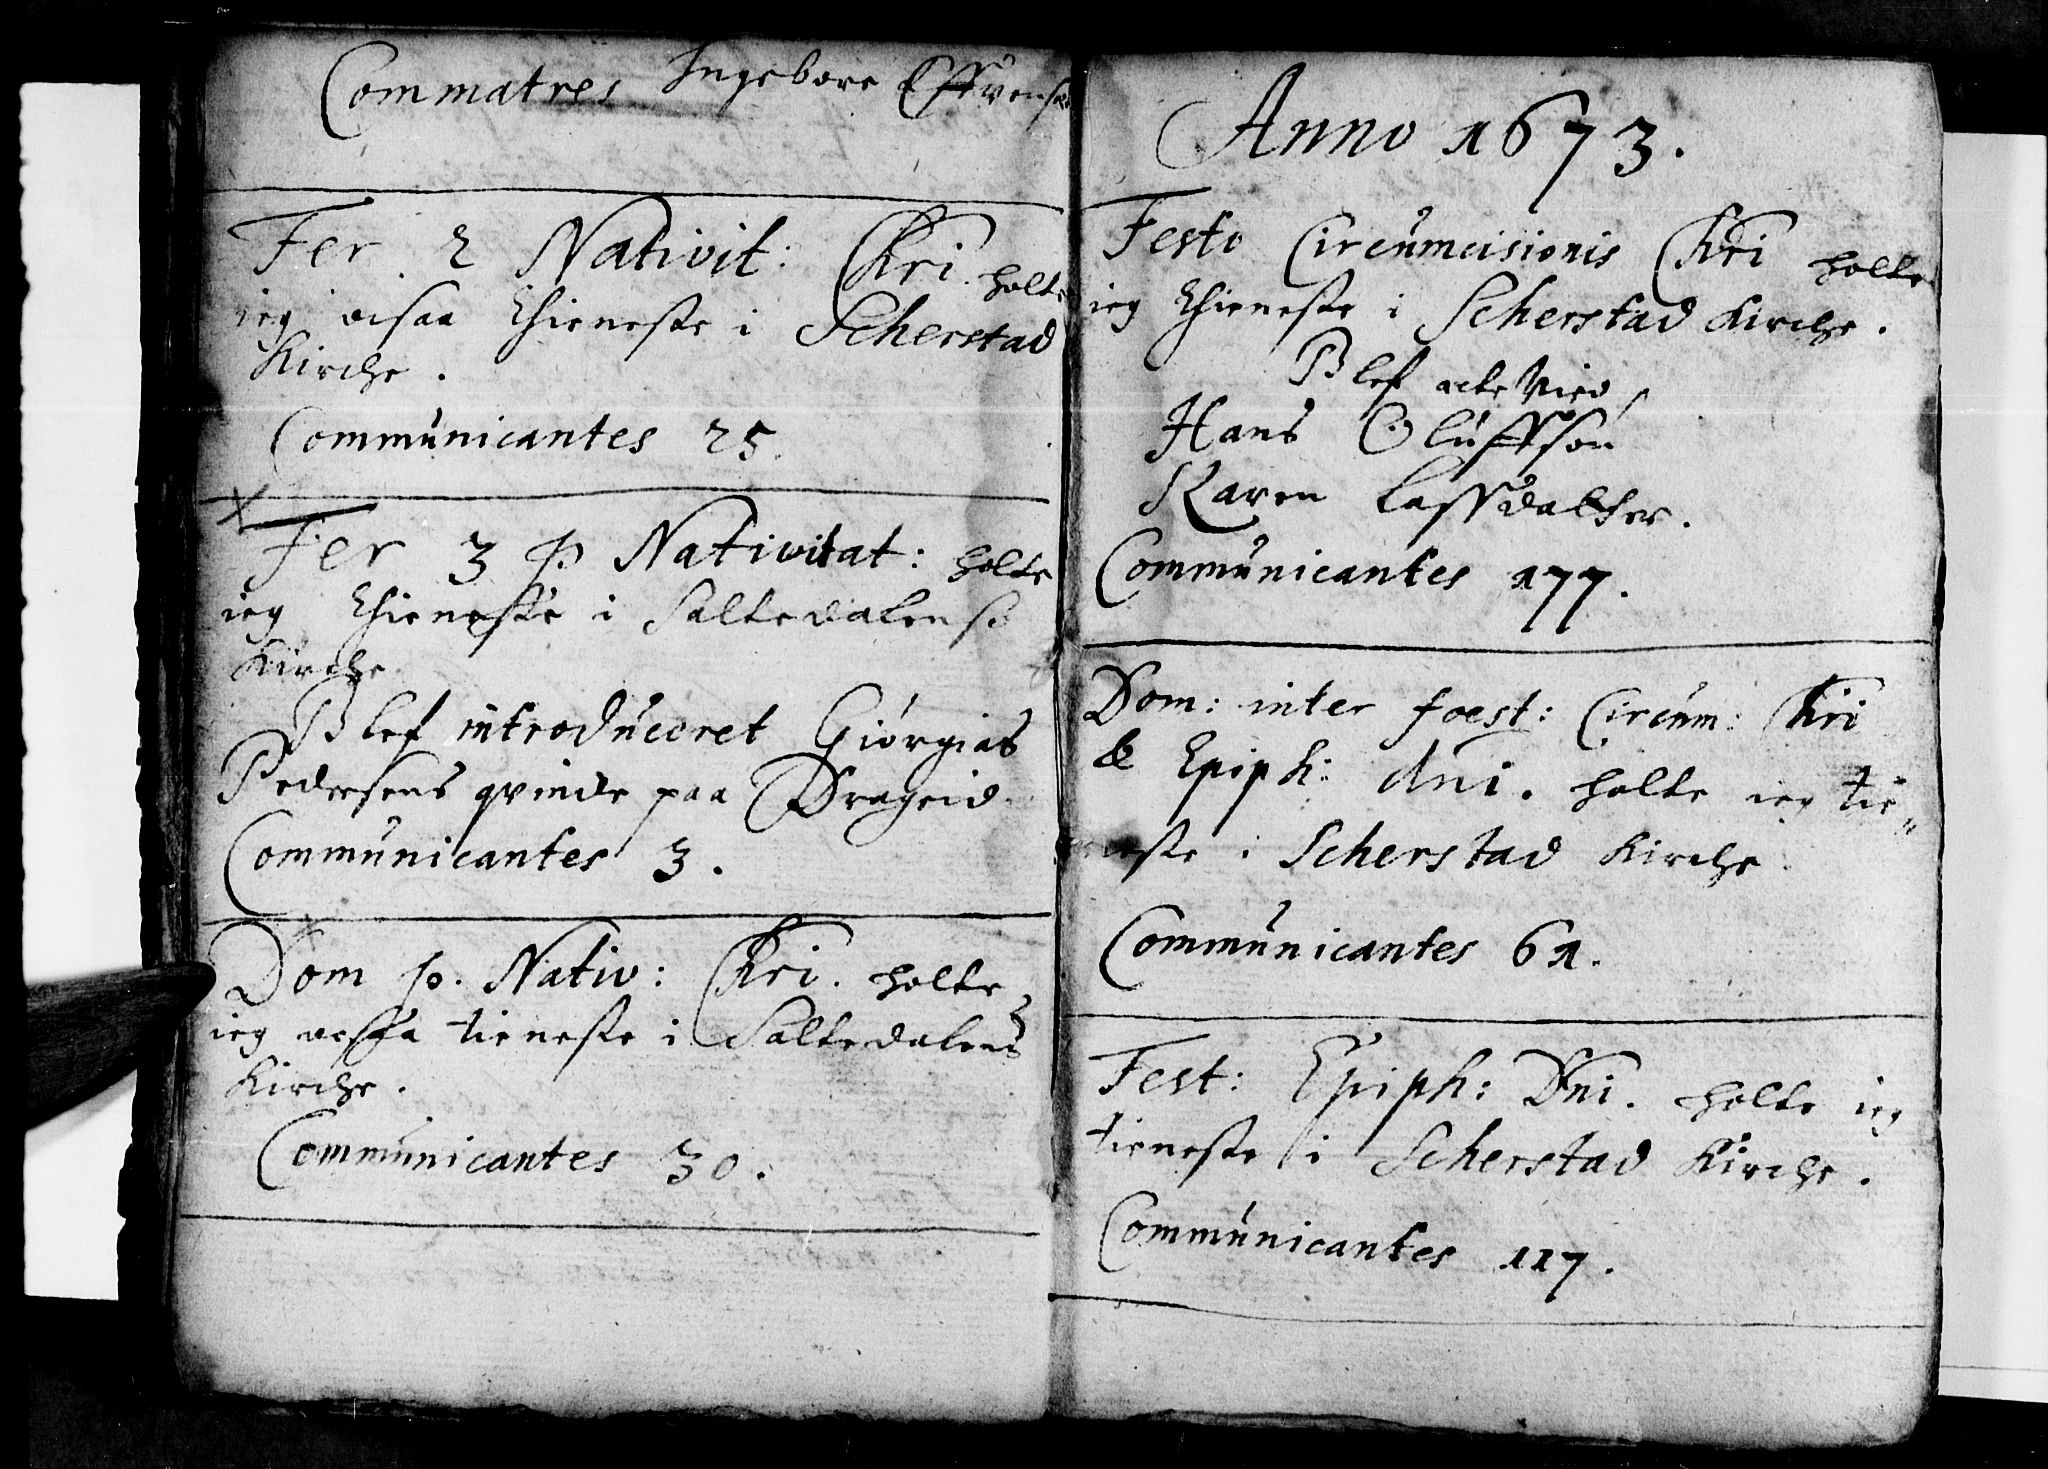 Commatres Ingebore
Fer 2 Nativit: Chri. holte
ieg ocsaa thieneste i Scherstad
Kirche.
Communicantes 25.
Fer 3 p Nativitat: holte
ieg thieneste i Saltedalens
Kirche
Blef introduceret Giørgias
Pedersens qvinde paa Drageid.
Communicantes 3.
Dom p. Nativ: Chri. holte
ieg ocsaa tieneste i Saltedalens
Kirche.
Communicantes 30.
Anno 1673.
Festo Circumcisionis Chri holte
ieg thieneste i Scherstad Kirche.
Blef ecte Vied
Hans Oluffsøn
Karen Lassdatter.
Communicantes 177.
Dom: inter foest: Circum: Chri
& Epiph: dni. holte ieg tie„
neste i Scherstad Kirche
Communicantes 61.
Fest: Epiph: Dni. holte ieg
tieneste i Scherstad Kirche.
Communicantes 117.